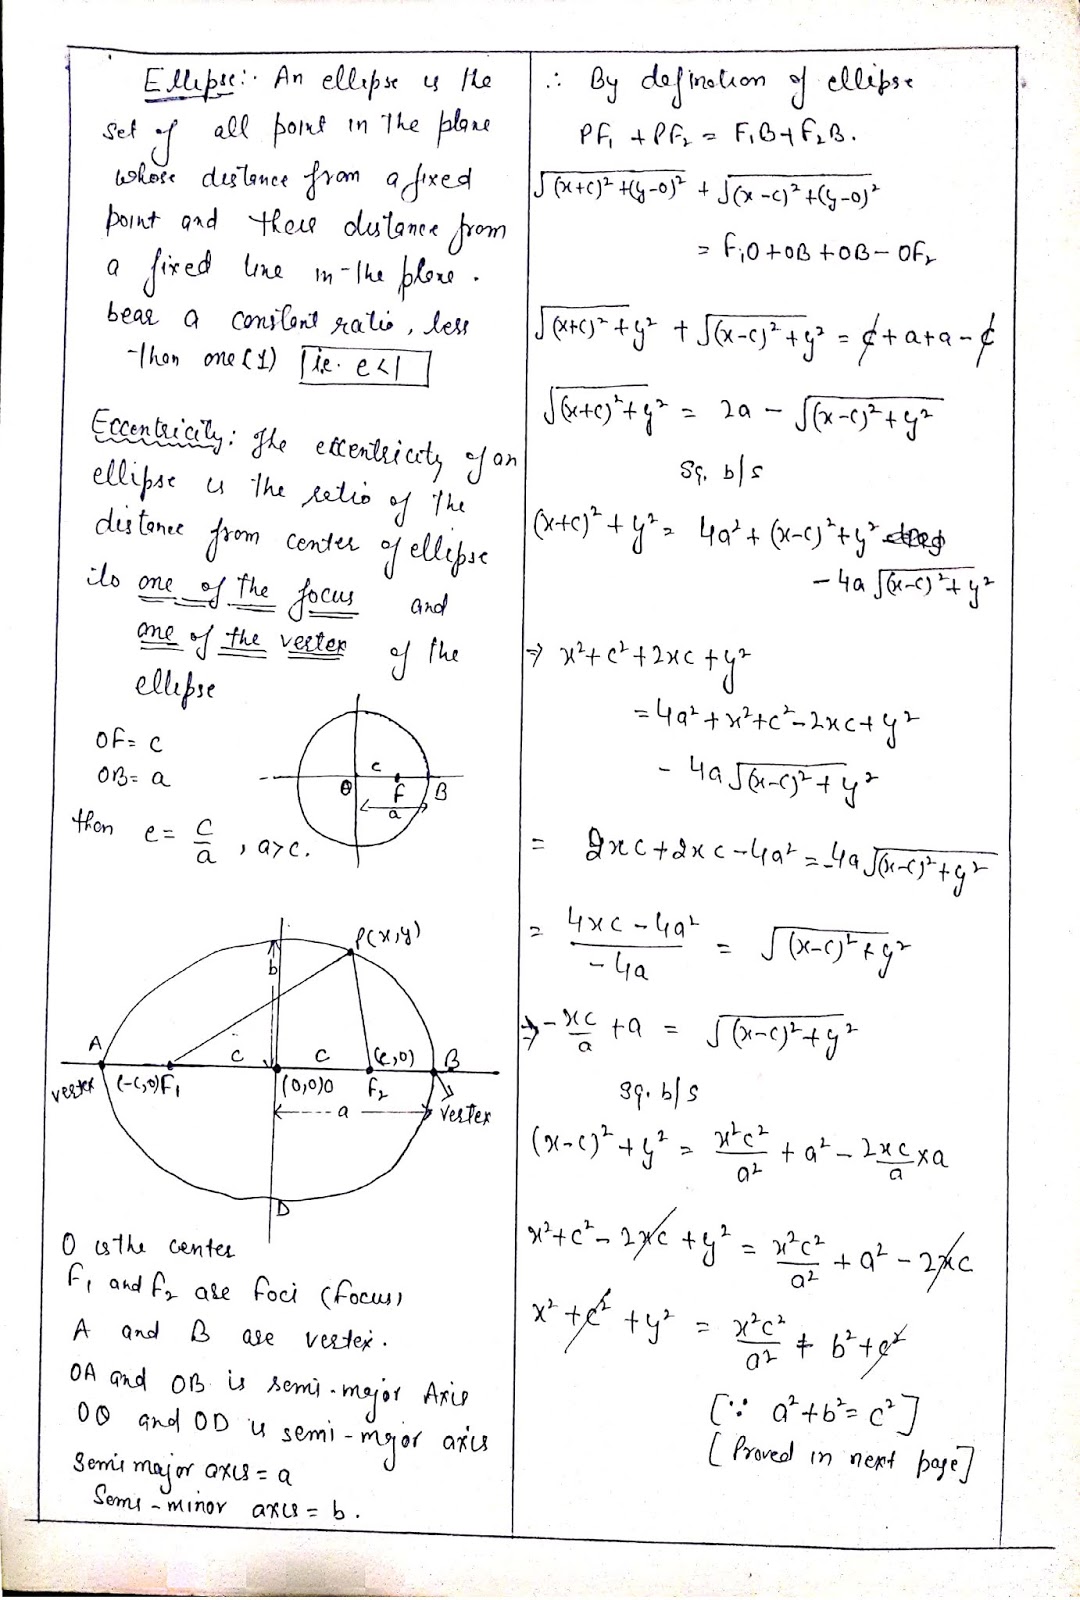 Ellipse:- An ellipse is the
set of all point in the plane
whose distance from a fixed
point and there distance from
a fixed line in the plane.
bear a constant ratio, less
than one (1) [i.e. e<1]
Eccentricity: The eccentricity of an
ellipse is the ratio of the
distance from center of ellipse
to one of the focus and
one of the vertex of the
ellipse
OF = c
OB = a
then e = c/a, a>c.
c
O F B
a
P(x,y)
b
A c c (c,0) B
vertex (-c,0)F₁ (0,0)O F₂
a vertex
D
O is the center
F₁ and F₂ are foci (focus)
A and B are vertex.
OA and OB is semi-major Axis
OQ and OD is semi-major axis
Semi major axis = a
Semi-minor axis = b.
∴ By defination of ellipse
PF₁ + PF₂ = F₁B + F₂B.
√(x+c)² + (y-0)² + √(x-c)² + (y-0)²
= F₁O + OB + OB - OF₂
√(x+c)² + y² + √(x-c)² + y² = c + a + a - c
√(x+c)² + y² = 2a - √(x-c)² + y²
Sq. b/s
(x+c)² + y² = 4a² + (x-c)² + y²
- 4a √(x-c)² + y²
⇒ x² + c² + 2xc + y²
= 4a² + x² + c² - 2xc + y²
- 4a √(x-c)² + y²
= 2xc + 2xc - 4a² = -4a √(x-c)² + y²
= (4xc - 4a²)/(-4a) = √(x-c)² + y²
⇒ -xc/a + a = √(x-c)² + y²
Sq. b/s
(x-c)² + y² = x²c²/a² + a² - 2xc/a × a
x² + c² - 2xc + y² = x²c²/a² + a² - 2xc
x² + c² + y² = x²c²/a² + b² + c²
[∵ a² + b² = c²]
[Proved in next page]